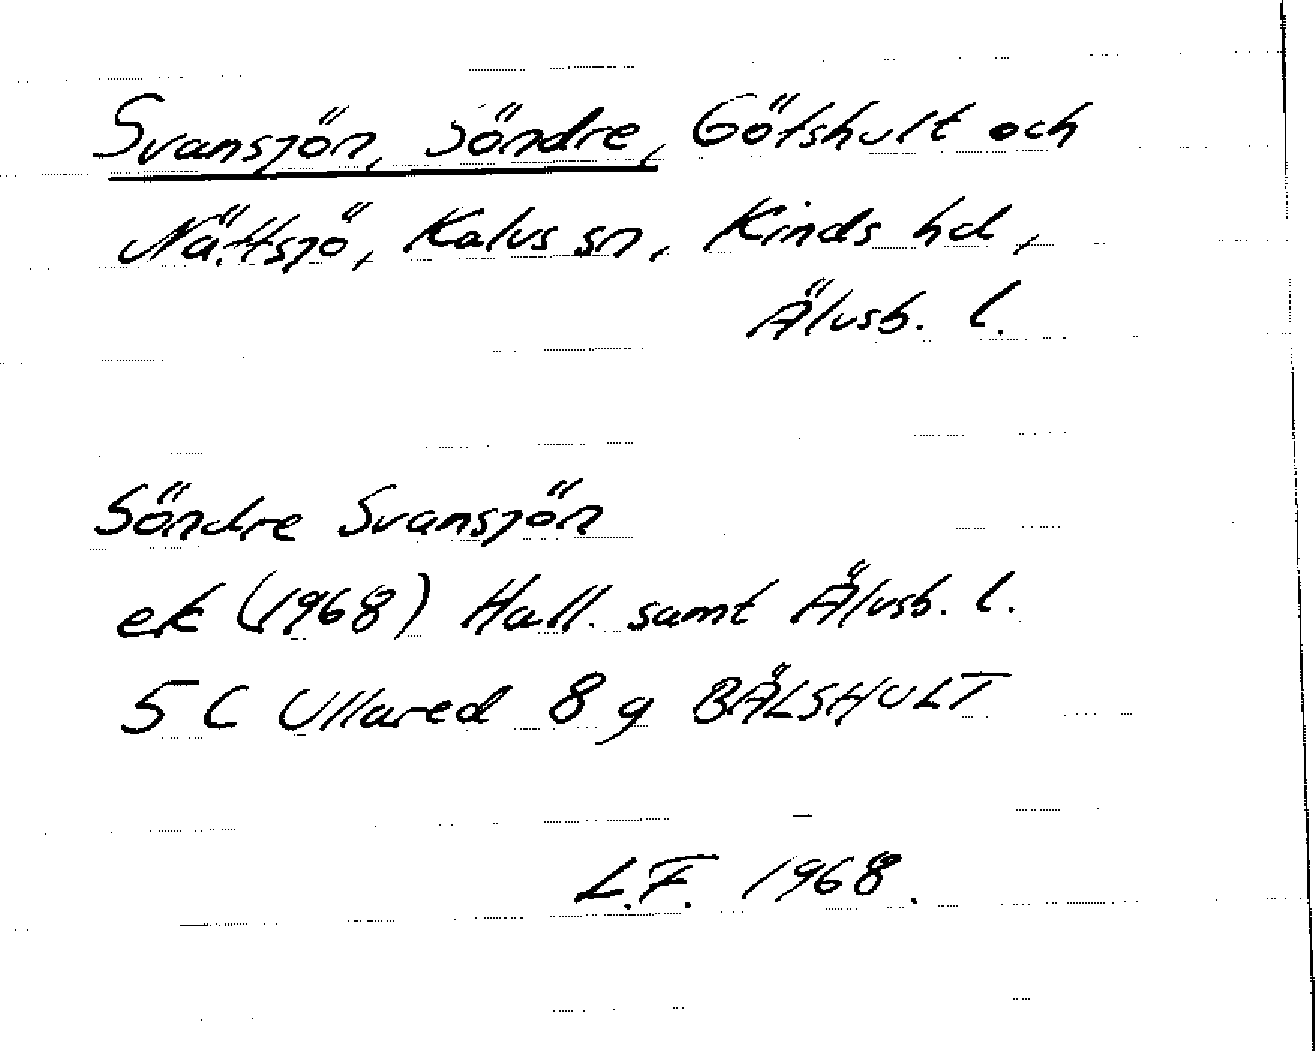 Svansjön, Söndre, Götshult och
Nättsjö, Kalvs sn, Kinds hd,
Älvsb. l.
Söndre Svansjön
ek (1968) Hall. samt Älvsb. l.
5 C Ullared 8 g BÄLSHULT
L.F. 1968.